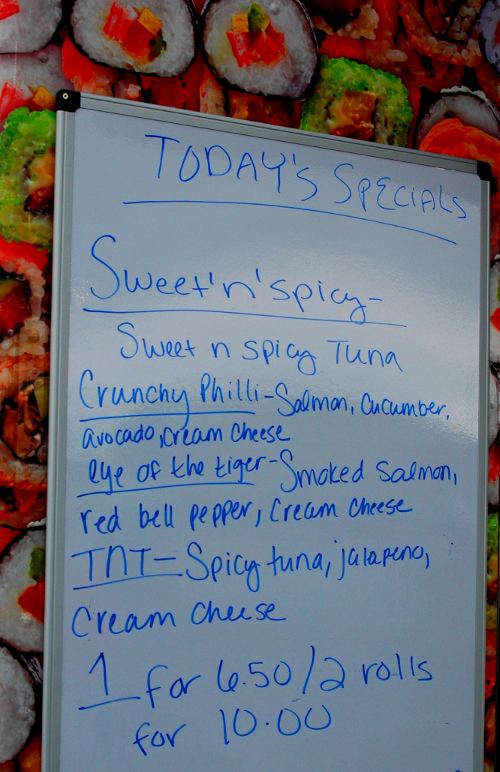 TODAY'S SPECIALS
Sweet'n'spicy-
Sweet n spicy Tuna
Crunchy Philli-Salmon, cucumber,
avocado, cream cheese
eye of the tiger-Smoked salmon,
red bell pepper, cream cheese
TNT-Spicy tuna, jalapeno,
Cream cheese
1 for 6.50/2 rolls
for 10.00